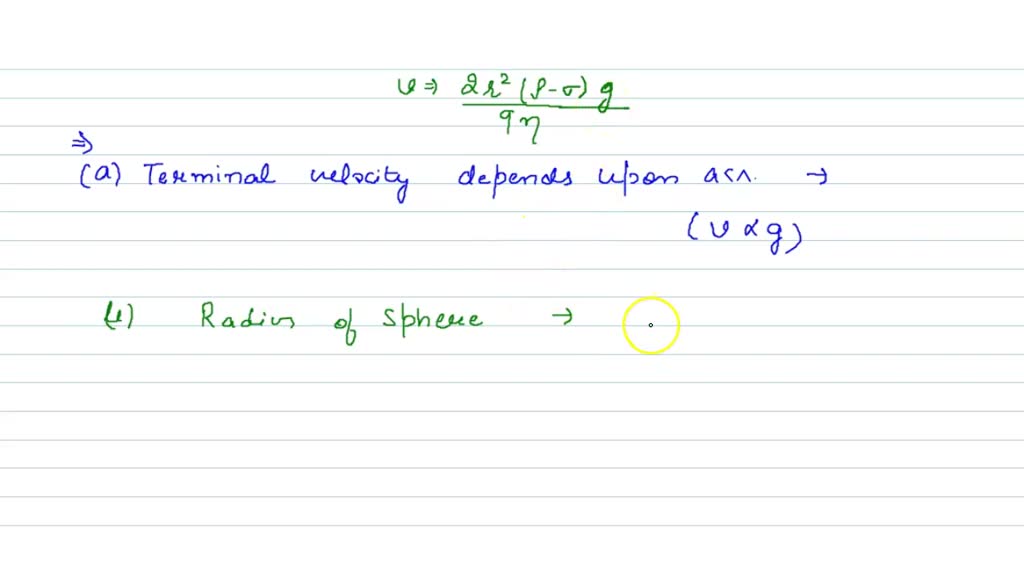 v ⇒ 2r² (ρ-σ) g
9η
⇒
(a) Terminal velocity depends upon acn. →
(v ∝ g)
Radius of Sphere →